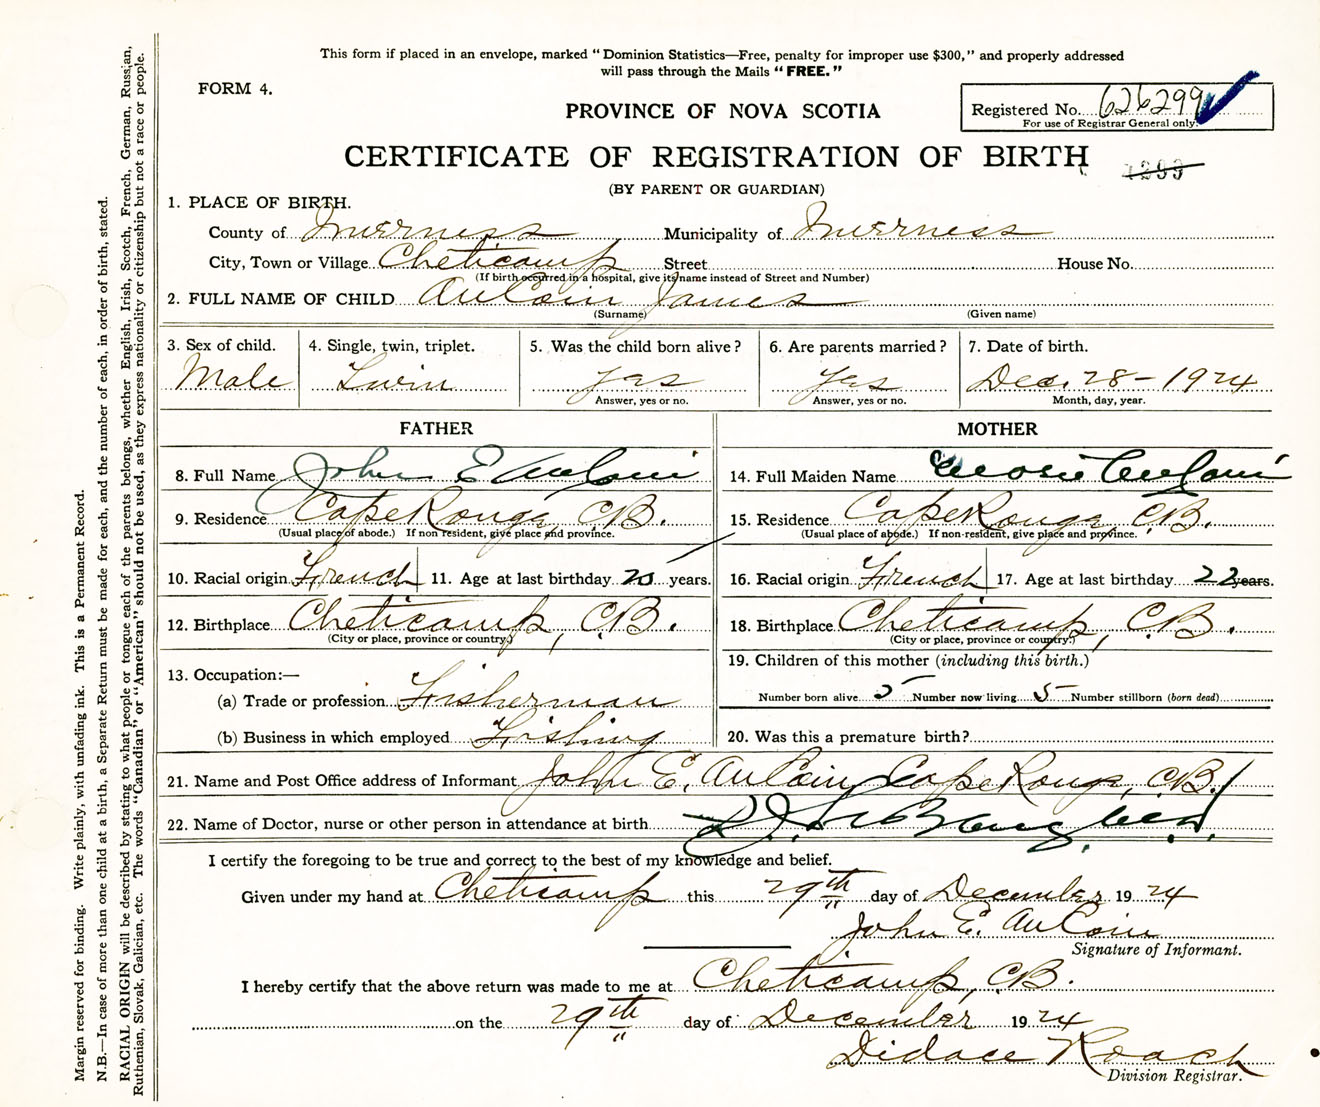 This form if placed in an envelope, marked "Dominion Statistics—Free, penalty for improper use $300," and properly addressed
will pass through the Mails "FREE."
FORM 4.
PROVINCE OF NOVA SCOTIA
Registered No. 626299
For use of Registrar General only.
CERTIFICATE OF REGISTRATION OF BIRTH
(BY PARENT OR GUARDIAN)
1. PLACE OF BIRTH.
County of Inverness Municipality of Inverness
City, Town or Village Cheticamp Street House No.
(If birth occurred in a hospital, give its name instead of Street and Number)
2. FULL NAME OF CHILD AuCoin James
(Surname) (Given name)
3. Sex of child. 4. Single, twin, triplet. 5. Was the child born alive? 6. Are parents married? 7. Date of birth.
Male Twin yes yes Dec. 28 - 1924
Answer, yes or no. Answer, yes or no. Month, day, year.
FATHER MOTHER
8. Full Name John E AuCoin 14. Full Maiden Name AuCoin
9. Residence Cape Rouge, C.B. 15. Residence Cape Rouge, C.B.
(Usual place of abode.) If non resident, give place and province. (Usual place of abode.) If non-resident, give place and province.
10. Racial origin French 11. Age at last birthday years. 16. Racial origin French 17. Age at last birthday 22 years.
12. Birthplace Cheticamp, C.B. 18. Birthplace Cheticamp, C.B.
(City or place, province or country.) (City or place, province or country.)
13. Occupation:— 19. Children of this mother (including this birth.)
(a) Trade or profession Fisherman Number born alive 5 Number now living 5 Number stillborn (born dead)
(b) Business in which employed Fishing 20. Was this a premature birth?
21. Name and Post Office address of Informant John E. AuCoin, Cape Rouge, C.B.
22. Name of Doctor, nurse or other person in attendance at birth
I certify the foregoing to be true and correct to the best of my knowledge and belief.
Given under my hand at Cheticamp this 29th day of December 1924
John E. AuCoin
Signature of Informant.
I hereby certify that the above return was made to me at Cheticamp, C.B.
on the 29th day of December 1924
Didace Roach
Division Registrar.
Margin reserved for binding. Write plainly, with unfading ink. This is a Permanent Record.
N.B.—In case of more than one child at a birth, a Separate Return must be made for each, and the number of each, in order of birth, stated.
RACIAL ORIGIN will be described by stating to what people or tongue each of the parents belongs, whether English, Irish, Scotch, French, German, Russian,
Ruthenian, Slovak, Galician, etc. The words "Canadian" or "American" should not be used, as they express nationality or citizenship but not a race or people.